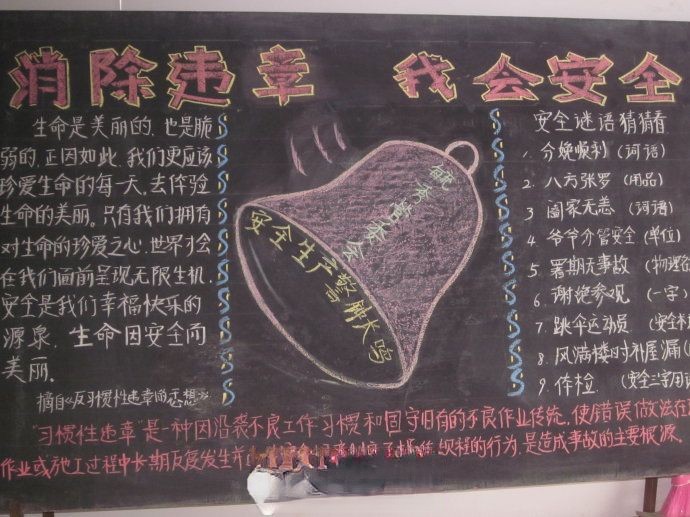 消除违章 我会安全
生命是美丽的，也是脆
弱的，正因如此，我们更应该
珍爱生命的每一天，去体验
生命的美丽。只有我们拥有
对生命的珍爱之心，世界才会
在我们面前呈现无限生机，
安全是我们幸福快乐的
源泉，生命因安全而
美丽。
摘自《反习惯性违章的思想》
安全生产警钟长鸣
安全谜语猜猜看
1. 分娩顺利（词语）
2. 八方张罗（用品）
3. 阖家无恙（词语）
4. 爷爷亦管安全（单位）
5. 暑期无事故（物理
6. 谢绝参观（一字）
7. 跳伞运动员（安全
8. 风满楼时补屋漏（
9. 体检（安全三字用语
"习惯性违章"是一种因沿袭不良工作习惯和固守旧有的不良作业传统，使错误做法在
作业或施工过程中长期反复发生 规程的行为，是造成事故的主要根源。